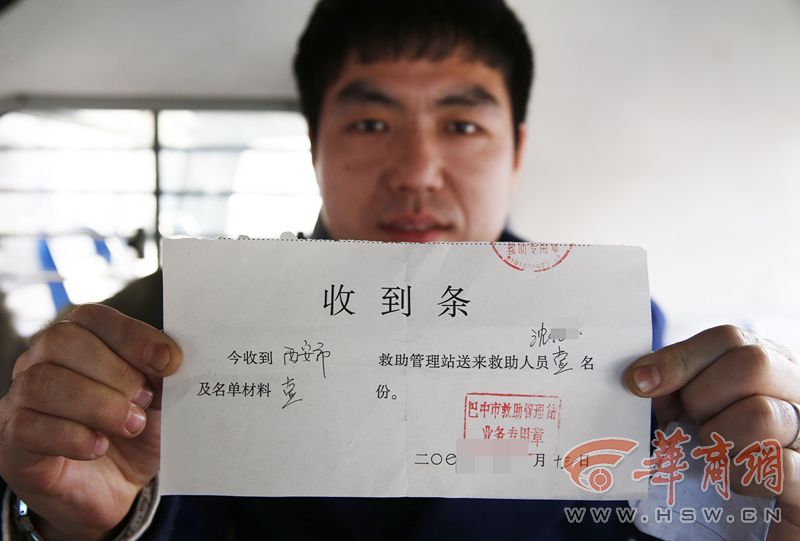 救助专用章
收到条
沈
今收到 西安市 救助管理站送来救助人员 壹 名
及名单材料 壹 份。
巴中市救助管理站
业务专用章
二〇 月 十 日
華商網
WWW.HSW.CN